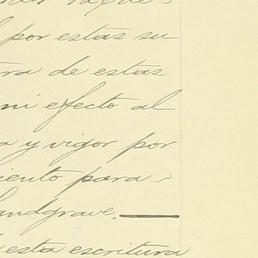 por estas su
ra de estas
ni efecto al
a y vigor por
iento para
Landgrave.
esta escritura